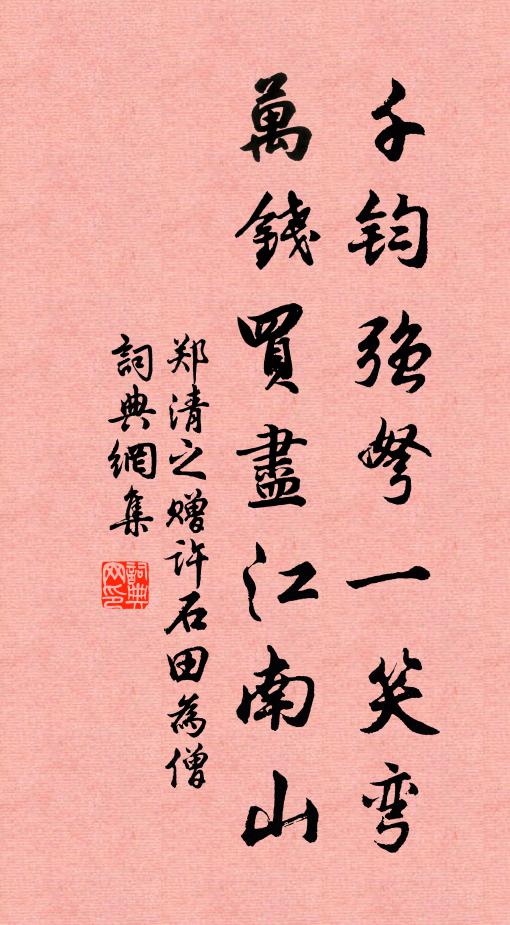 千钧强弩一笑弯
萬錢買盡江南山
郑清之赠许石田為僧
詞典網集
詞典网印